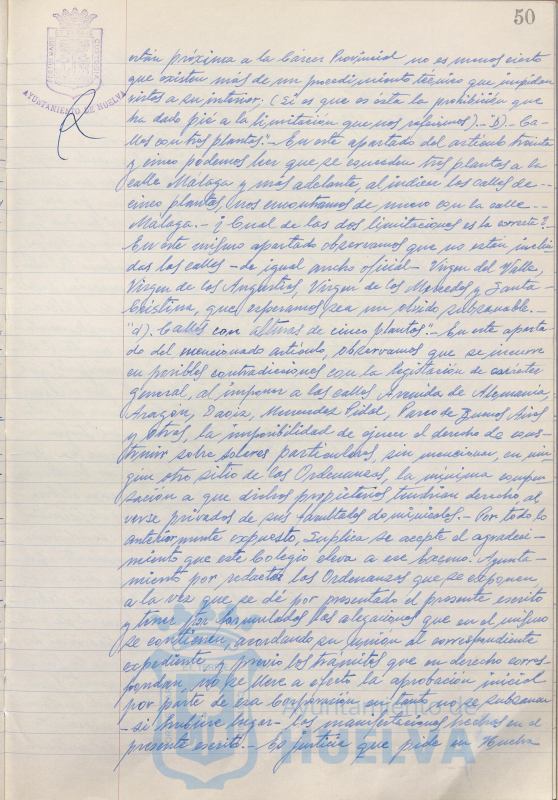 50
AYUNTAMIENTO DE HUELVA
están próxima a la Cárcel Provincial no es menos cierto
que existen más de un procedimiento técnico que impidan
vistas a su interior. (Si es que es ésta la prohibición que
ha dado pié a la limitación que nos referimos).- "b).- Ca-
lles con tres plantas".- En este apartado del artículo treinta
y cinco podemos leer que se conceden tres plantas a la
calle Málaga y más adelante, al indicar las calles de --
cinco plantas, nos encontramos de nuevo con la calle --
Málaga.- ¿Cual de las dos limitaciones es la correcta?.
En este mismo apartado observamos que no están inclui-
das las calles - de igual ancho oficial - Virgen del Valle,
Virgen de las Angustias, Virgen de las Mercedes y Santa-
Cristina, que esperamos sea un olvido subsanable.-
"d). Calles con alturas de cinco plantas".- En este aparta-
do del mencionado artículo, observamos que se incurre
en posibles contradicciones con la legislación de carácter
general, al imponer a las calles Avenida de Alemania,
Aragón, Daoiz, Menendez Pidal, Paseo de Buenos Aires
y otras, la imposibilidad de ejercer el derecho de cons-
truir sobre solares particulares, sin mencionar, en nin-
gún otro sitio de las Ordenanzas, la mínima compen-
sación a que dichos propietarios tendrían derecho al
verse privados de sus facultades dominicales.- Por todo lo
anteriormente expuesto, Suplica se acepte el agradeci-
miento que este Colegio eleva a ese Excmo. Ayunta-
miento por redactar las Ordenanzas que se exponen,
a la vez que se dé por presentado el presente escrito
y tener por formulados las alegaciones que en el mismo
se contienen, acordando su unión al correspondiente
expediente y previo los trámites que en derecho corres-
pondan, no se lleve a efecto la aprobación inicial
por parte de esa Corporación en tanto no se subsanan
- si hubiere lugar - las manifestaciones hechas en el
presente escrito.- Es justicia que pide en Huelva
Ayuntamiento de
HUELVA